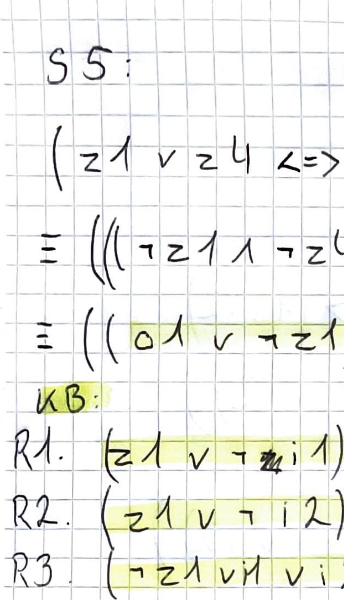 S5:
(z1 v z4 <=>
≡ (((¬z1 ∧ ¬z4
≡ ((o1 v ¬z1
KB:
R1. (z1 v ¬i1)
R2. (z1 v ¬i2)
R3. (¬z1 v i1 v i